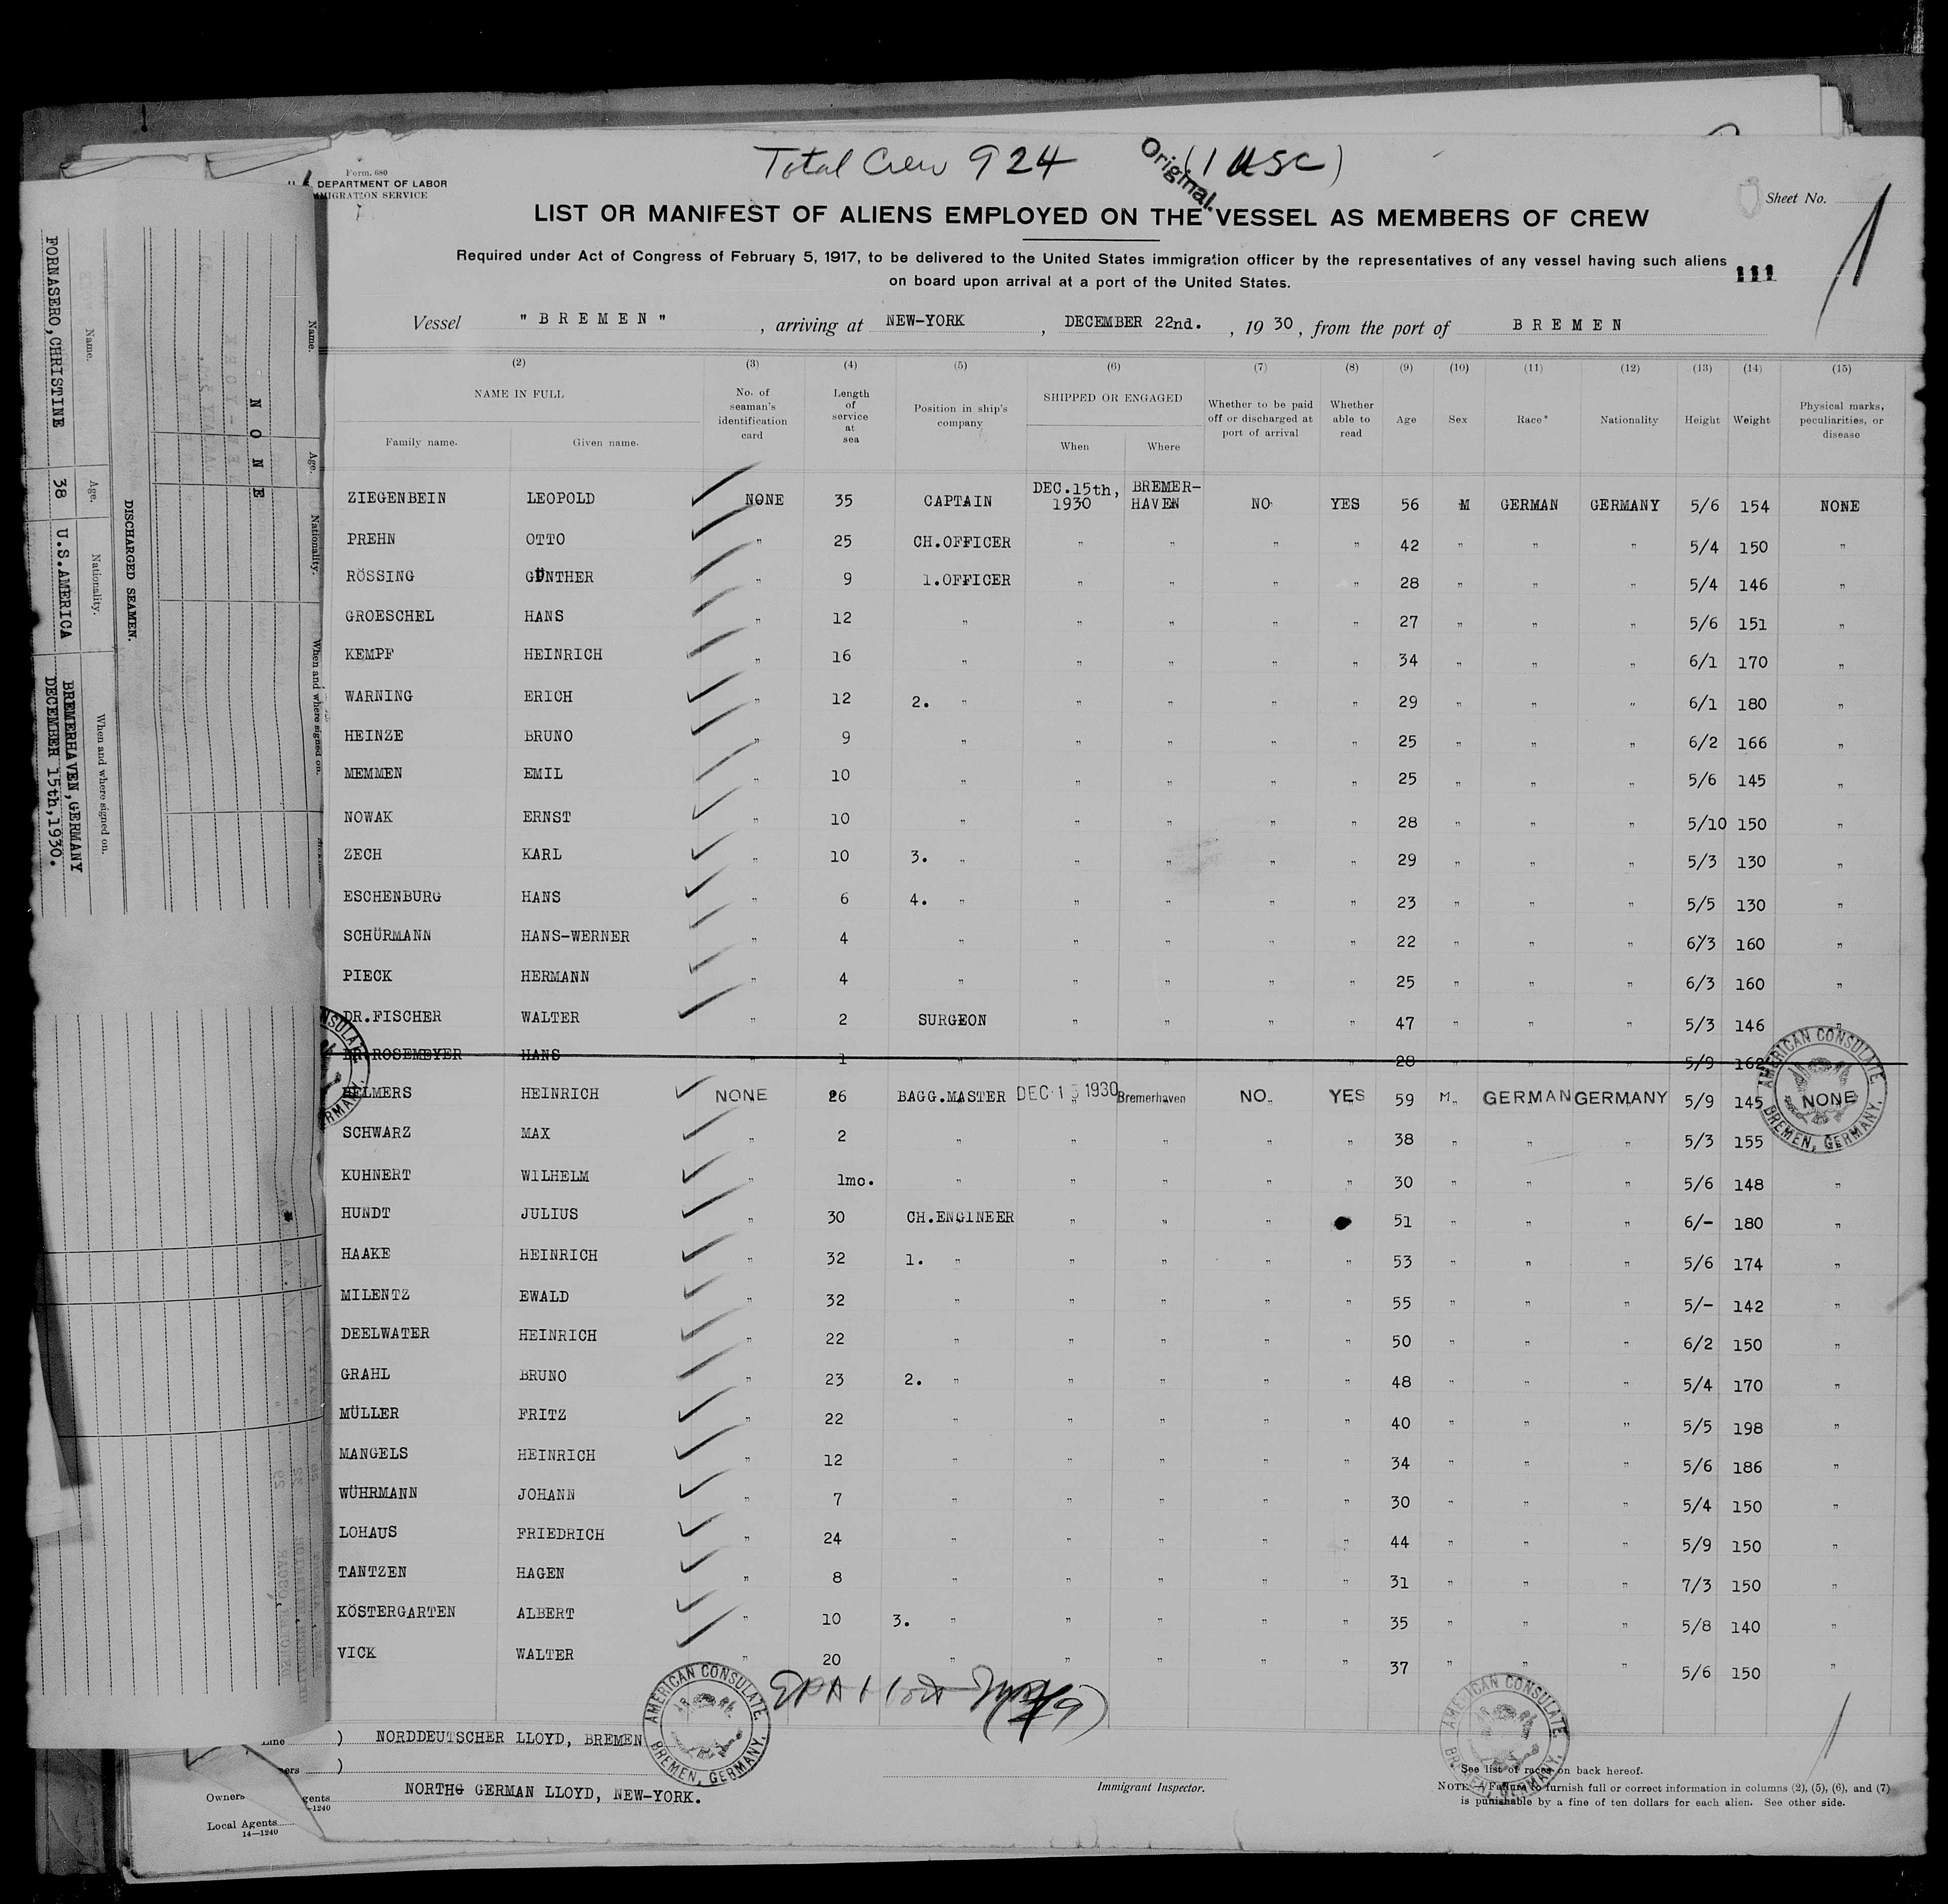 Total Crew 924 (1 USC)
Original
Form. 680
DEPARTMENT OF LABOR
IMMIGRATION SERVICE
Sheet No. 1
LIST OR MANIFEST OF ALIENS EMPLOYED ON THE VESSEL AS MEMBERS OF CREW
Required under Act of Congress of February 5, 1917, to be delivered to the United States immigration officer by the representatives of any vessel having such aliens
on board upon arrival at a port of the United States.
111
Vessel "BREMEN", arriving at NEW-YORK, DECEMBER 22nd., 1930, from the port of BREMEN
(2) (3) (4) (5) (6) (7) (8) (9) (10) (11) (12) (13) (14) (15)
NAME IN FULL No. of seaman's identification card Length of service at sea Position in ship's company SHIPPED OR ENGAGED Whether to be paid off or discharged at port of arrival Whether able to read Age Sex Race* Nationality Height Weight Physical marks, peculiarities, or disease
Family name. Given name. When Where
ZIEGENBEIN LEOPOLD NONE 35 CAPTAIN DEC.15th, 1930 BREMER-HAVEN NO YES 56 M GERMAN GERMANY 5/6 154 NONE
PREHN OTTO " 25 CH.OFFICER " " " " 42 " " " 5/4 150 "
RÖSSING GÜNTHER " 9 1.OFFICER " " " " 28 " " " 5/4 146 "
GROESCHEL HANS " 12 " " " " " 27 " " " 5/6 151 "
KEMPF HEINRICH " 16 " " " " " 34 " " " 6/1 170 "
WARNING ERICH " 12 2. " " " " " 29 " " " 6/1 180 "
HEINZE BRUNO " 9 " " " " " 25 " " " 6/2 166 "
MEMMEN EMIL " 10 " " " " " 25 " " " 5/6 145 "
NOWAK ERNST " 10 " " " " " 28 " " " 5/10 150 "
ZECH KARL " 10 3. " " " " " 29 " " " 5/3 130 "
ESCHENBURG HANS " 6 4. " " " " " 23 " " " 5/5 130 "
SCHÜRMANN HANS-WERNER " 4 " " " " " 22 " " " 6/3 160 "
PIECK HERMANN " 4 " " " " " 25 " " " 6/3 160 "
DR.FISCHER WALTER " 2 SURGEON " " " " 47 " " " 5/3 146 "
DR.ROSEMEYER HANS " 1 " " " " " 28 " " " 5/9 162
HELMERS HEINRICH NONE 26 BAGG.MASTER DEC 15 1930 Bremerhaven NO YES 59 M GERMAN GERMANY 5/9 145 NONE
SCHWARZ MAX " 2 " " " " " 38 " " " 5/3 155
KUHNERT WILHELM " 1mo. " " " " " 30 " " " 5/6 148 "
HUNDT JULIUS " 30 CH.ENGINEER " " " 51 " " " 6/- 180 "
HAAKE HEINRICH " 32 1. " " " " " 53 " " " 5/6 174 "
MILENTZ EWALD " 32 " " " " " 55 " " " 5/- 142 "
DEELWATER HEINRICH " 22 " " " " " 50 " " " 6/2 150 "
GRAHL BRUNO " 23 2. " " " " " 48 " " " 5/4 170 "
MÜLLER FRITZ " 22 " " " " " 40 " " " 5/5 198 "
MANGELS HEINRICH " 12 " " " " " 34 " " " 5/6 186 "
WÜHRMANN JOHANN " 7 " " " " " 30 " " " 5/4 150 "
LOHAUS FRIEDRICH " 24 " " " " " 44 " " " 5/9 150 "
TANTZEN HAGEN " 8 " " " " " 31 " " " 7/3 150 "
KÖSTERGARTEN ALBERT " 10 3. " " " " " 35 " " " 5/8 140 "
VICK WALTER " 20 " " " " " 37 " " " 5/6 150 "
AMERICAN CONSULATE BREMEN, GERMANY.
AMERICAN CONSULATE BREMEN, GERMANY.
AMERICAN CONSULATE BREMEN, GERMANY.
Line ) NORDDEUTSCHER LLOYD, BREMEN
)
NORTHG GERMAN LLOYD, NEW-YORK.
Immigrant Inspector.
See list of races on back hereof.
NOTE.—Failure to furnish full or correct information in columns (2), (5), (6), and (7)
is punishable by a fine of ten dollars for each alien. See other side.
Owners
Local Agents
14—1240
DISCHARGED SEAMEN.
Name. Age. Nationality. When and where signed on.
FORNASERO, CHRISTINE 38 U.S.AMERICA BREMERHAVEN, GERMANY
DECEMBER 15th, 1930.
NONE
Name. Age. Nationality. When and where signed on.